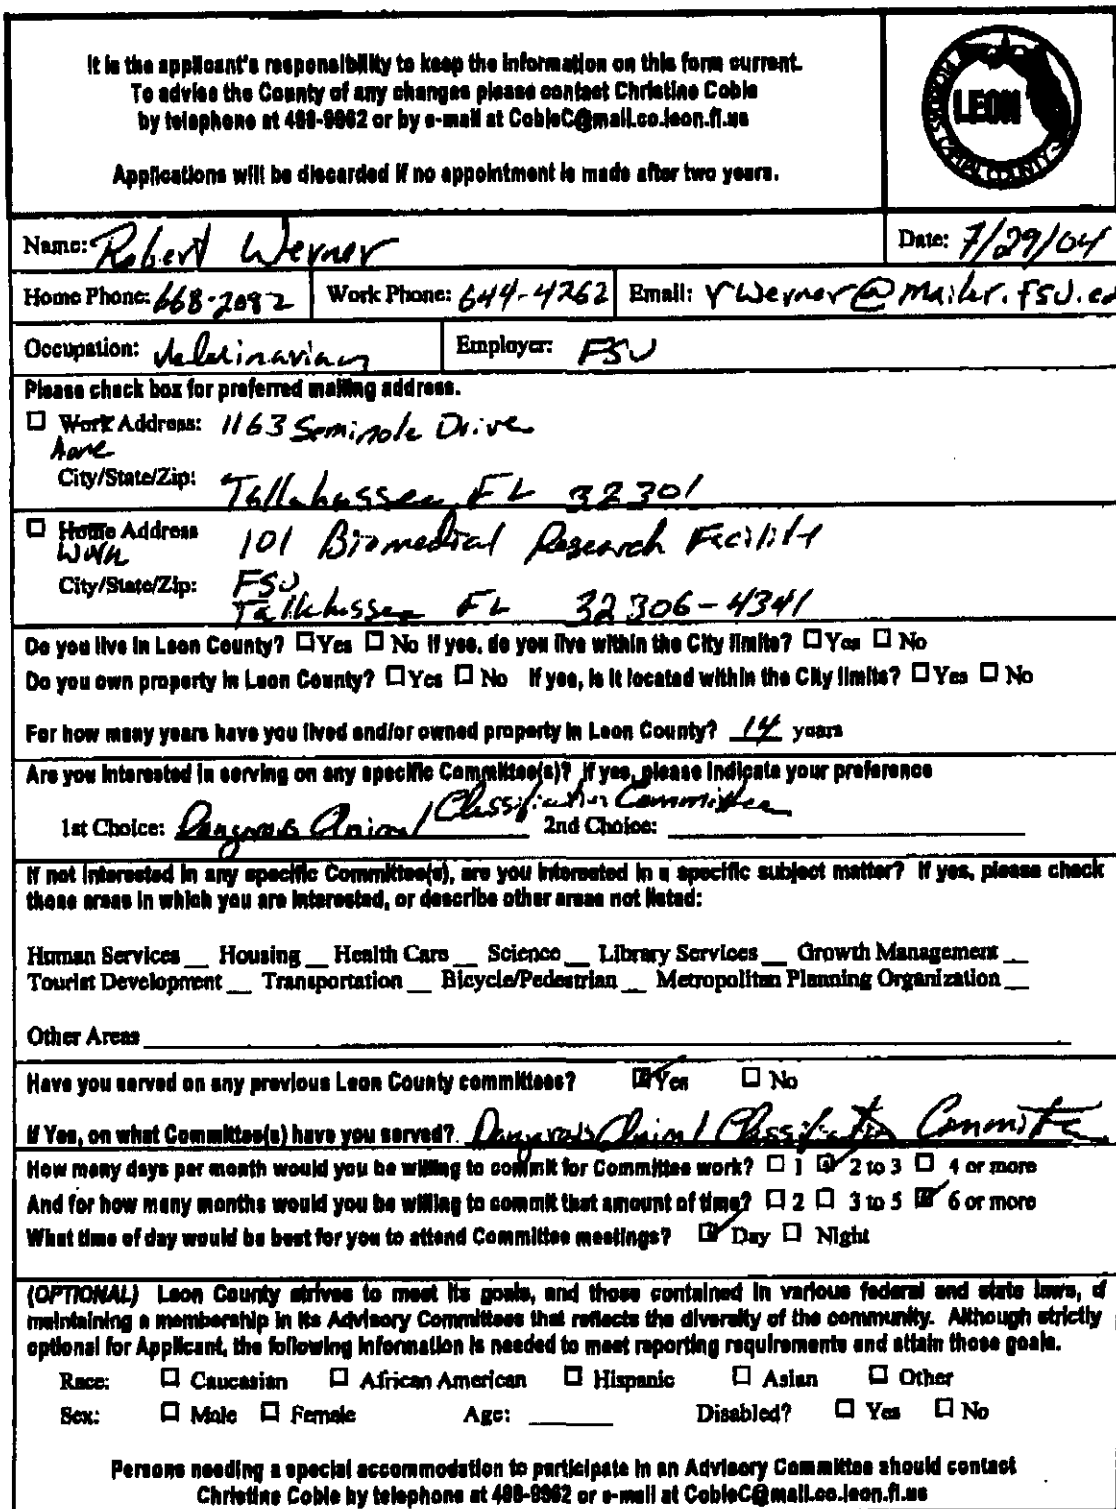 It is the applicant's responsibility to keep the information on this form current.
To advise the County of any changes please contact Christine Coble
by telephone at 488-9962 or by e-mail at CobleC@mail.co.leon.fl.us
Applications will be discarded if no appointment is made after two years.
LEON
Name: Robert Werner
Date: 7/29/04
Home Phone: 668-2082 Work Phone: 644-4262 Email: rwerner@mailer.fsu.ed
Occupation: Veterinarian Employer: FSU
Please check box for preferred mailing address.
☐ Work Address: 1163 Seminole Drive
home
City/State/Zip: Tallahassee FL 32301
☐ Home Address 101 Biomedical Research Facility
Work
City/State/Zip: FSU
Tallahassee FL 32306-4341
Do you live in Leon County? ☐ Yes ☐ No If yes, do you live within the City limits? ☐ Yes ☐ No
Do you own property in Leon County? ☐ Yes ☐ No If yes, is it located within the City limits? ☐ Yes ☐ No
For how many years have you lived and/or owned property in Leon County? 14 years
Are you interested in serving on any specific Committee(s)? If yes, please indicate your preference
1st Choice: Dangerous Animal Classification Committee 2nd Choice:
If not interested in any specific Committee(s), are you interested in a specific subject matter? If yes, please check
those areas in which you are interested, or describe other areas not listed:
Human Services __ Housing __ Health Care __ Science __ Library Services __ Growth Management __
Tourist Development __ Transportation __ Bicycle/Pedestrian __ Metropolitan Planning Organization __
Other Areas
Have you served on any previous Leon County committees? ☑ Yes ☐ No
If Yes, on what Committee(s) have you served? Dangerous Animal Classification Committee
How many days per month would you be willing to commit for Committee work? ☐ 1 ☑ 2 to 3 ☐ 4 or more
And for how many months would you be willing to commit that amount of time? ☐ 2 ☐ 3 to 5 ☑ 6 or more
What time of day would be best for you to attend Committee meetings? ☑ Day ☐ Night
(OPTIONAL) Leon County strives to meet its goals, and those contained in various federal and state laws, of
maintaining a membership in its Advisory Committees that reflects the diversity of the community. Although strictly
optional for Applicant, the following information is needed to meet reporting requirements and attain those goals.
Race: ☐ Caucasian ☐ African American ☐ Hispanic ☐ Asian ☐ Other
Sex: ☐ Male ☐ Female Age: ______ Disabled? ☐ Yes ☐ No
Persons needing a special accommodation to participate in an Advisory Committee should contact
Christine Coble by telephone at 488-9962 or e-mail at CobleC@mail.co.leon.fl.us